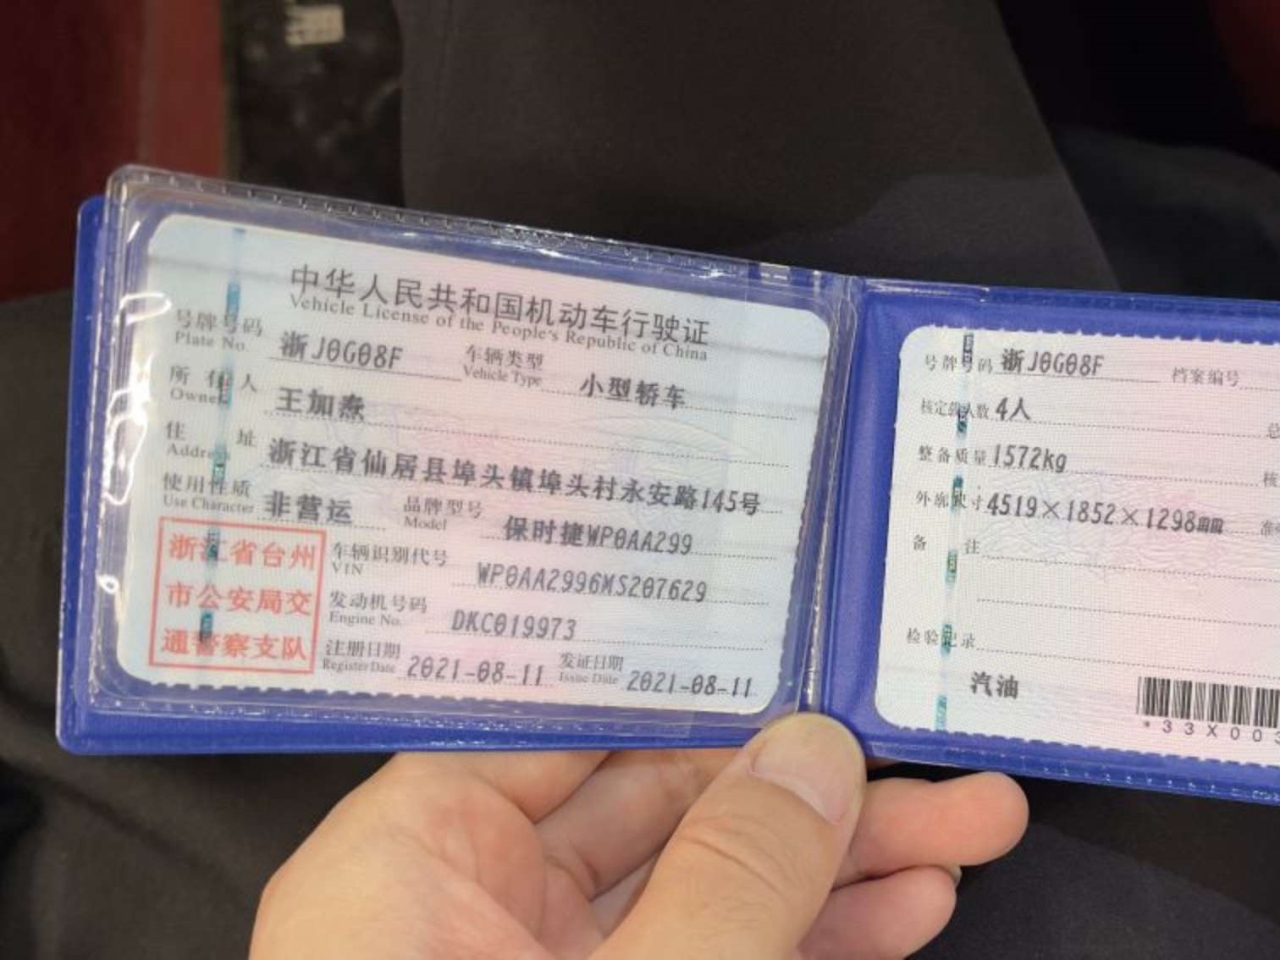 中华人民共和国机动车行驶证
Vehicle License of the People's Republic of China
号牌号码 浙J0G08F 车辆类型 小型轿车
Plate No. Vehicle Type
所有人 王加焘
Owner
住址 浙江省仙居县埠头镇埠头村永安路145号
Address
使用性质 非营运 品牌型号 保时捷WP0AA299
Use Character Model
浙江省台州
市公安局交
通警察支队
车辆识别代号 WP0AA2996MS207629
VIN
发动机号码 DKC019973
Engine No.
注册日期 2021-08-11 发证日期 2021-08-11
Register Date Issue Date
号牌号码 浙J0G08F 档案编号
核定载人数 4人 总
整备质量 1572kg 核
外廓尺寸 4519×1852×1298mm 准
备注
检验记录
汽油
*33X003